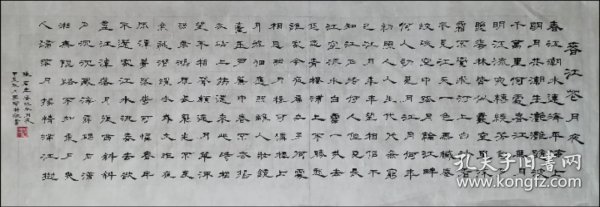 春江花月夜
春江潮水連海平海上
明月共潮生灩灩隨波
千萬里何處春江無月
明江流宛轉繞芳甸月
照花林皆似霰空裏流
霜不覺飛汀上白沙看
不見江天一色無纖塵
皎皎空中孤月輪江畔
何人初見月江月何年
初照人人生代代無窮
已江月年年望相似不
知江月待何人但見長
江送流水白雲一片去
悠悠青楓浦上不勝愁
誰家今夜扁舟子何處
相思明月樓可憐樓上
月徘徊應照離人妝鏡
臺玉戶簾中卷不去搗
衣砧上拂還來此時相
望不相聞願逐月華流
照君鴻雁長飛光不度
魚龍潛躍水成文昨夜
閑潭夢落花可憐春半
不還家江水流春去欲
盡江潭落月復西斜斜
月沉沉藏海霧碣石瀟
湘無限路不知乘月幾
人歸落月搖情滿江樹
孔夫子旧书网
www.kongfz.com